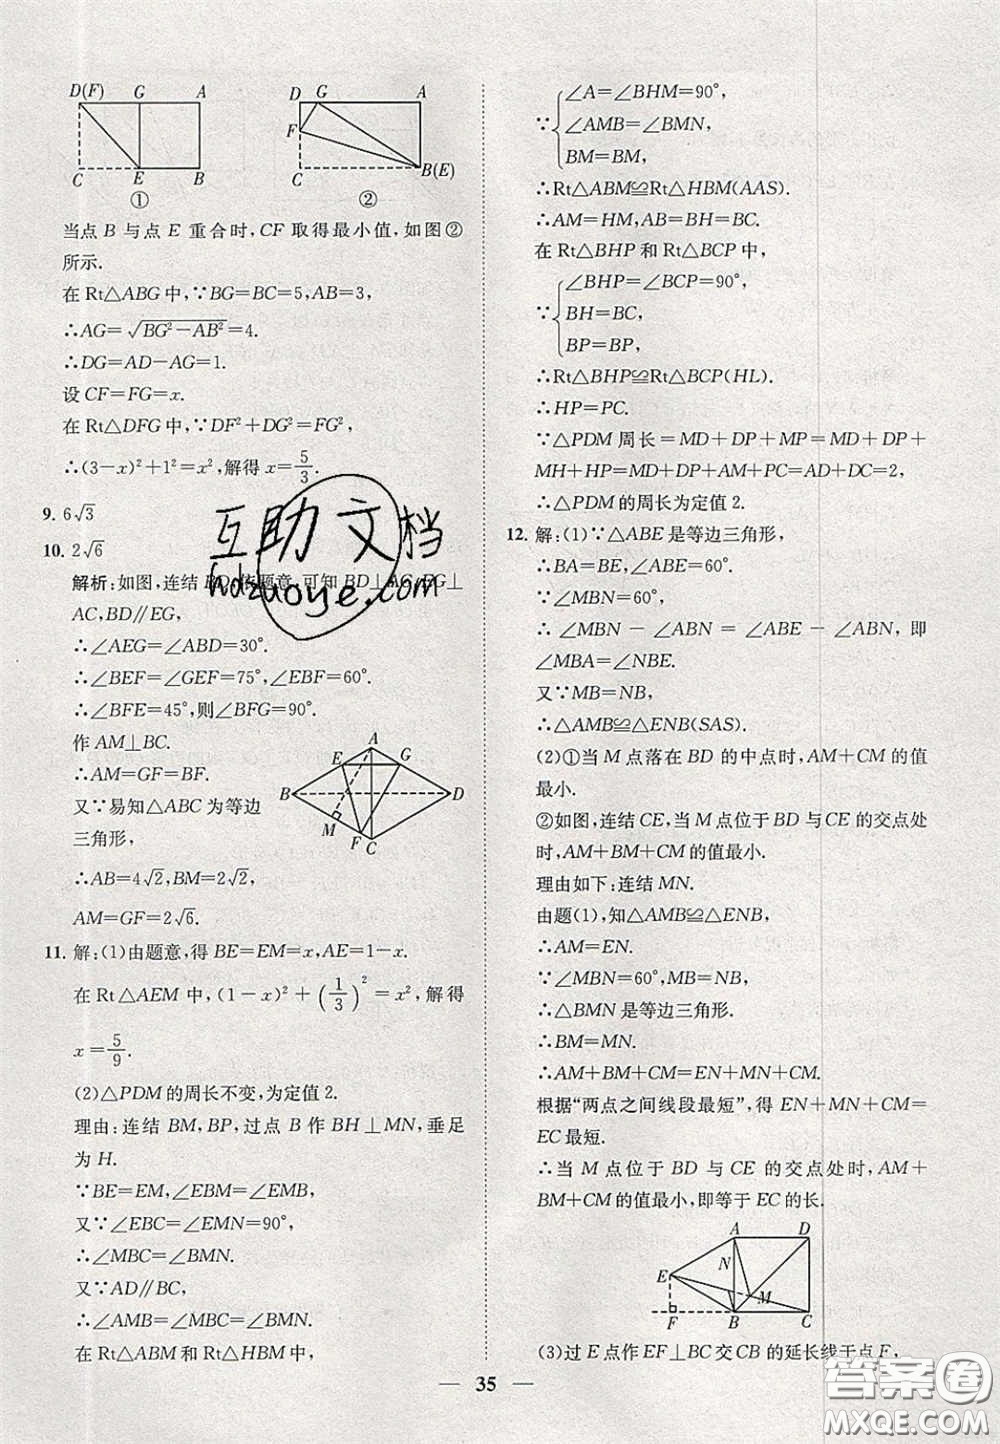 D(F) G A
C E B
①
D G A
F
C B(E)
②
当点 B 与点 E 重合时,CF 取得最小值,如图②
所示.
在 Rt△ABG 中,∵BG=BC=5,AB=3,
∴AG=√(BG²-AB²)=4.
∴DG=AD-AG=1.
设 CF=FG=x.
在 Rt△DFG 中,∵DF²+DG²=FG²,
∴(3-x)²+1²=x²,解得 x=5/3.
9. 6√3
10. 2√6
解析:如图,连结 BD,依题意,可知 BD⊥AC,EG⊥
AC,BD∥EG,
∴∠AEG=∠ABD=30°.
∴∠BEF=∠GEF=75°,∠EBF=60°.
∴∠BFE=45°,则∠BFG=90°.
作 AM⊥BC.
∴AM=GF=BF.
又∵易知△ABC 为等边
三角形,
∴AB=4√2,BM=2√2,
AM=GF=2√6.
A
E G
B D
M F C
11. 解:(1)由题意,得 BE=EM=x,AE=1-x.
在 Rt△AEM 中,(1-x)²+(1/3)²=x²,解得
x=5/9.
(2)△PDM 的周长不变,为定值 2.
理由:连结 BM,BP,过点 B 作 BH⊥MN,垂足
为 H.
∵BE=EM,∠EBM=∠EMB,
又∵∠EBC=∠EMN=90°,
∴∠MBC=∠BMN.
又∵AD∥BC,
∴∠AMB=∠MBC=∠BMN.
在 Rt△ABM 和 Rt△HBM 中,
∵{∠A=∠BHM=90°,
∠AMB=∠BMN,
BM=BM,
∴Rt△ABM≌Rt△HBM(AAS).
∴AM=HM,AB=BH=BC.
在 Rt△BHP 和 Rt△BCP 中,
∵{∠BHP=∠BCP=90°,
BH=BC,
BP=BP,
∴Rt△BHP≌Rt△BCP(HL).
∴HP=PC.
∵△PDM 周长=MD+DP+MP=MD+DP+
MH+HP=MD+DP+AM+PC=AD+DC=2.
∴△PDM 的周长为定值 2.
12. 解:(1)∵△ABE 是等边三角形,
∴BA=BE,∠ABE=60°.
∵∠MBN=60°,
∴∠MBN-∠ABN=∠ABE-∠ABN,即
∠MBA=∠NBE.
又∵MB=NB,
∴△AMB≌△ENB(SAS).
(2)①当 M 点落在 BD 的中点时,AM+CM 的值
最小.
②如图,连结 CE,当 M 点位于 BD 与 CE 的交点处
时,AM+BM+CM 的值最小.
理由如下:连结 MN.
由题(1),知△AMB≌△ENB,
∴AM=EN.
∵∠MBN=60°,MB=NB,
∴△BMN 是等边三角形.
∴BM=MN.
∴AM+BM+CM=EN+MN+CM.
根据“两点之间线段最短”,得 EN+MN+CM=
EC 最短.
∴当 M 点位于 BD 与 CE 的交点处时,AM+
BM+CM 的值最小,即等于 EC 的长.
A D
N
E
M
F B C
(3)过 E 点作 EF⊥BC 交 CB 的延长线于点 F,
35
互助文档
hdzuoye.com
答案圈
MXQE.COM